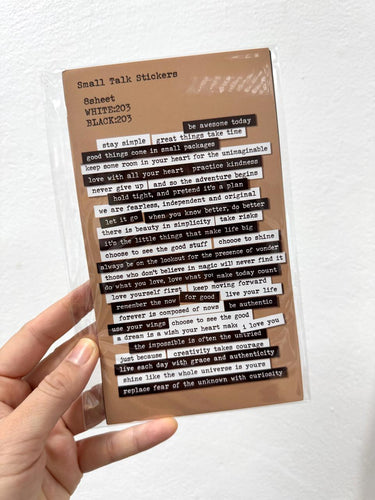 Small Talk Stickers
8sheet
WHITE:203
BLACK:203
be awesome today
stay simple great things take time
good things come in small packages
keep some room in your heart for the unimaginable
love with all your heart practice kindness
never give up and so the adventure begins
hold tight, and pretend it's a plan
we are fearless, independent and original
let it go when you know better, do better
there is beauty in simplicity take risks
it's the little things that make life big
choose to see the good stuff choose to shine
always be on the lookout for the presence of wonder
those who don't believe in magic will never find it
do what you love, love what you make today count
love yourself first keep moving forward
remember the now for good live your life
forever is composed of nows be authentic
use your wings choose to see the good
a dream is a wish your heart make i love you
the impossible is often the untried
just because creativity takes courage
live each day with grace and authenticity
shine like the whole universe is yours
replace fear of the unknown with curiosity